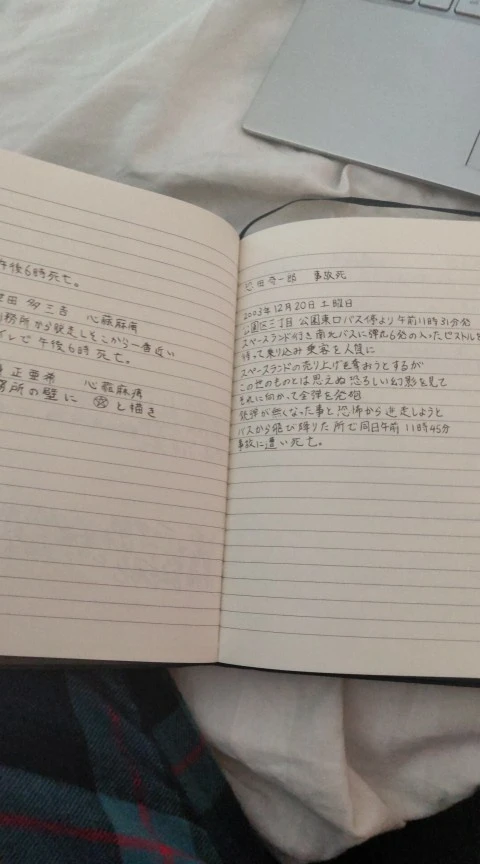 午後6時死亡。
田 多三吉 心臓麻痺
務所から脱走しそこから一番近い
イレで 午後6時 死亡。
正亜希 心臓麻痺
所の壁に と描き
恐田奇一郎 事故死
2003年12月20日 土曜日
公園区三丁目 公園東口バス停より午前11時31分発
スペースランド行き南北バスに弾丸6発の入ったピストルを
持って乗り込み乗客を人質に
スペースランドの売り上げを奪おうとするが
この世のものとは思えぬ恐ろしい幻影を見て
それに向かって全弾を発砲
銃弾が無くなった事と恐怖から逃走しようと
バスから飛び降りた所で同日午前11時45分
事故に遭い死亡。